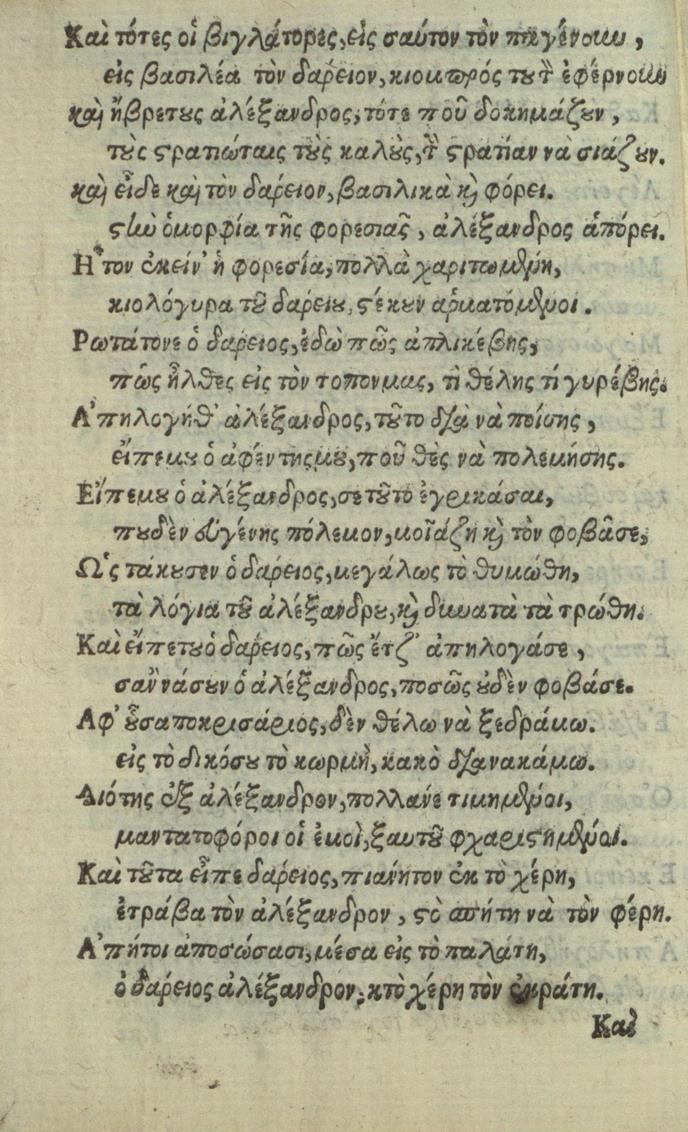 Καὶ τότες οἱ βιγλάτορες, εἰς σαύτον τὸν πηγένουν,
εἰς βασιλέα τὸν δαρειον, κιομπρός του τ̀ ἐφέρνουν
καὶ ἤβρετους ἀλέξανδρος, τότε ποῦ δοκημάζουν,
τοὺς στρατιώταις τοὺς καλοὺς, τ̀ στρατίαν νὰ σιάζουν.
καὶ εἶδε καὶ τὸν δαρειον, βασιλικὰ καὶ φόρει.
στὴν ὁμορφία τῆς φορεσιᾶς, ἀλέξανδρος ἀπόρει.
Η῏τον ἐκείν' ἡ φορεσία, πολλὰ χαριτωμένη,
κιολόγυρα τοῦ δαρείου, στέκουν ἁρματόμένοι.
Ρωτάτονε ὁ δαρειος, ἐδὼ πῶς ἀπλικέβης,
πὼς ἦλθες εἰς τὸν τοπονμας, τὶ θέλης τί γυρέβης.
Α᾿πηλογήθ' ἀλέξανδρος, τοῦτο διὰ νὰ ποίσης,
εἴπεμου ὁ ἀφέντηςμου, ποῦ θὲς νὰ πολεμήσης.
Εἴπεμου ὁ ἀλέξανδρος, σετοῦτο ἐγρικάσαι,
πουδὲν εὐγένης πόλεμον, μοιάζη καὶ τὸν φοβᾶσε,
Ω῾ς τάκουσεν ὁ δαρειος, μεγάλως τὸ θυμώθη,
τὰ λόγια τοῦ ἀλέξανδρου, καὶ δυνατὰ τὰ τρώθη.
Καὶ εἴπετου ὁ δαρειος, πῶς ἔτζ' ἀπηλογάσε,
σαῢ νάσουν ὁ ἀλέξανδρος, ποσῶς οὐδὲν φοβάσε.
Αφ' οὖσαποκρισάριος, δὲν θέλω νὰ ξεδράμω.
εἰς τὸ δικόσου τὸ κωρμὴ, κακὸ διὰνακάμω.
Διότης ἐξ ἀλέξανδρον, πολλανε τιμημένοι,
μαντατοφόροι οἱ ἐμοὶ, ξαυτοῦ φχαριστημένοι.
Καὶ τοῦτα εἶπε δαρειος, πιανητον ἐκ τὸ χέρη,
ἐτράβα τὸν ἀλέξανδρον, στὸ σπήτη νὰ τὸν φέρη.
Α᾿πήτοι ἀποσώσασι, μέσα εἰς τὸ παλάτη,
ὁ δαρειος ἀλέξανδρον, κτὸ χέρη τὸν ἐκράτη.
Καὶ